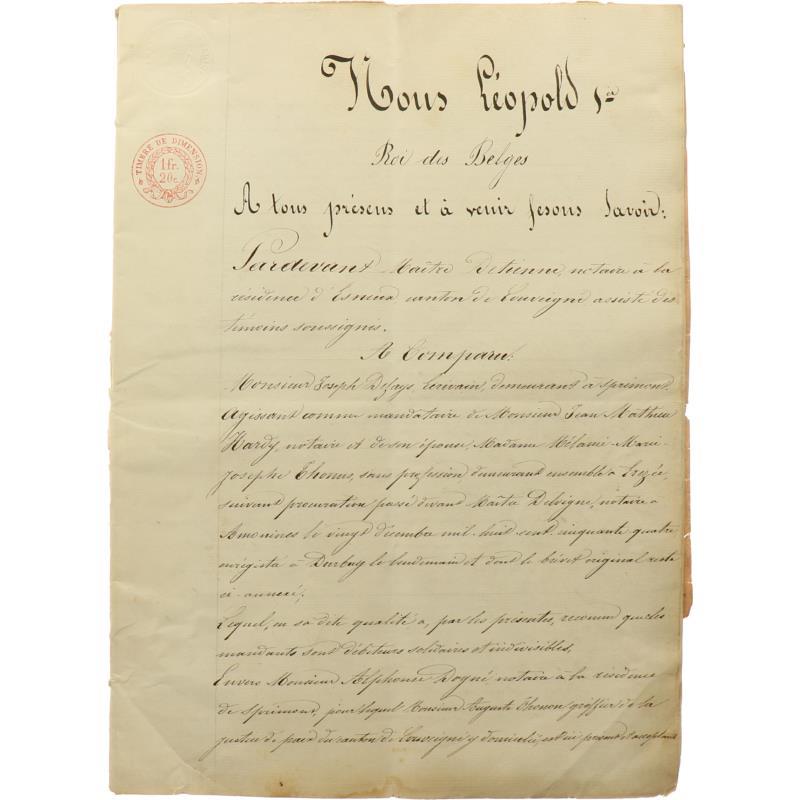 Nous Léopold 1er
Roi des Belges
A tous présens et à venir fesons Savoir:
TIMBRE DE DIMENSION
1 fr.
20 c.
Pardevant Maître Detienne, notaire à la
résidence d'Esneux, canton de Louveigné assisté des
témoins soussignés.
A Comparu:
Monsieur Joseph Defays, écrivain, demeurant à Sprimont
Agissant comme mandataire de Monsieur Jean Mathieu
Hardy, notaire et de son épouse, Madame Mélanie Marie
Josephe Thonus, sans profession demeurant ensemble à Erezée,
suivant procuration passé devant Maître Delvigne, notaire à
Amonines le vingt décembre mil huit cent cinquante quatre
enrégistré à Durbuy le lendemain et dont le brévet original reste
ci-annexé;
Lequel, en sa dite qualité a, par les présentes, reconnu que les
mandants sont débiteurs solidaires et indivisibles,
Envers Monsieur Alphonse Dogné notaire à la résidence
de Sprimont, pour lequel Monsieur Auguste Thonon, greffier de la
justice de paix du canton de Louveigné y domicilié, est ici présent et acceptant